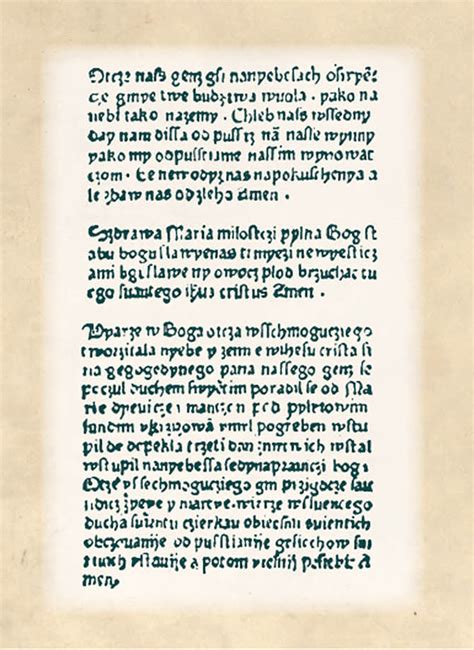 Otcze nasz genz gsi nanyebesach oswyecz
ze gmye twe budz twa wuola . yako na
nebi tako nazemy . Chleb nass wssedny
day nam dissa od pusst nam nasse wynny
yako my odpusstiame nassim wynowat
czom . Ee newodyz nas napokuschenya a
le zbaw nas odzleho Amen .
Szdrawa Maria milostczi pylna Bog st
abu boguslawyenas ti myezi newyesticz
ami bgislaweny owocz plod brzucha tu
ego swantego ihus cristus Amen .
Wyarze w Boga otcza wsschmoguczego
tworzitala nyebe y zemie wihesu crista si
na gegogedynego pana nassego genz se
poczul duchem swyetim poradil se od Ma
rie dyewicze i manczen pod pylatowim
fundim ukrizowan vmrl pogreben wstu
pil de depekla trzeti dan zmrtwich wstal
wstupil nanyebessa sedyna prawiczi bogi
Otcze vssechmoguczego gm przygdcze sau
dicz zywe y martwe wierze wsluencego
ducha swieti czierkau obiecni swientich
obczowanije od pusstianije gesiechow
wstanije a potom viecnij Amen